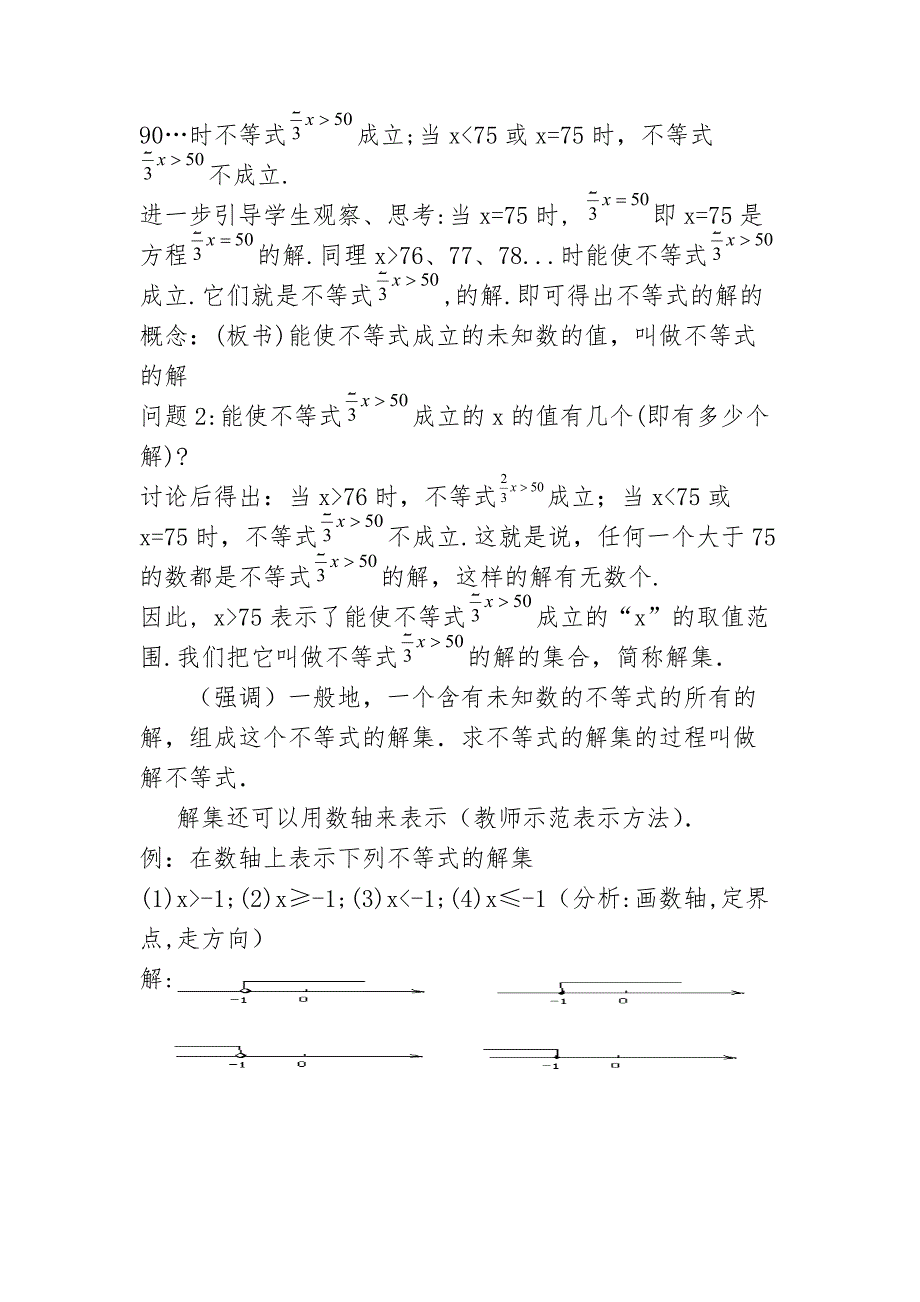 90…时不等式2/3 x > 50成立;当 x<75 或 x=75 时，不等式
2/3 x > 50不成立.
进一步引导学生观察、思考:当 x=75 时, 2/3 x = 50即 x=75 是
方程2/3 x = 50的解.同理 x>76、77、78...时能使不等式2/3 x > 50
成立.它们就是不等式2/3 x > 50,的解.即可得出不等式的解的
概念：(板书)能使不等式成立的未知数的值，叫做不等式
的解
问题 2:能使不等式2/3 x > 50成立的 x 的值有几个(即有多少个
解)?
讨论后得出：当 x>76 时，不等式2/3 x > 50成立；当 x<75 或
x=75 时，不等式2/3 x > 50不成立.这就是说，任何一个大于 75
的数都是不等式2/3 x > 50的解，这样的解有无数个.
因此, x>75 表示了能使不等式2/3 x > 50成立的“x”的取值范
围.我们把它叫做不等式2/3 x > 50的解的集合，简称解集．
（强调）一般地，一个含有未知数的不等式的所有的
解，组成这个不等式的解集．求不等式的解集的过程叫做
解不等式．
解集还可以用数轴来表示（教师示范表示方法）．
例：在数轴上表示下列不等式的解集
(1)x>-1;(2)x≥-1;(3)x<-1;(4)x≤-1（分析:画数轴,定界
点,走方向）
解:
-1 0 -1 0
-1 0 -1 0